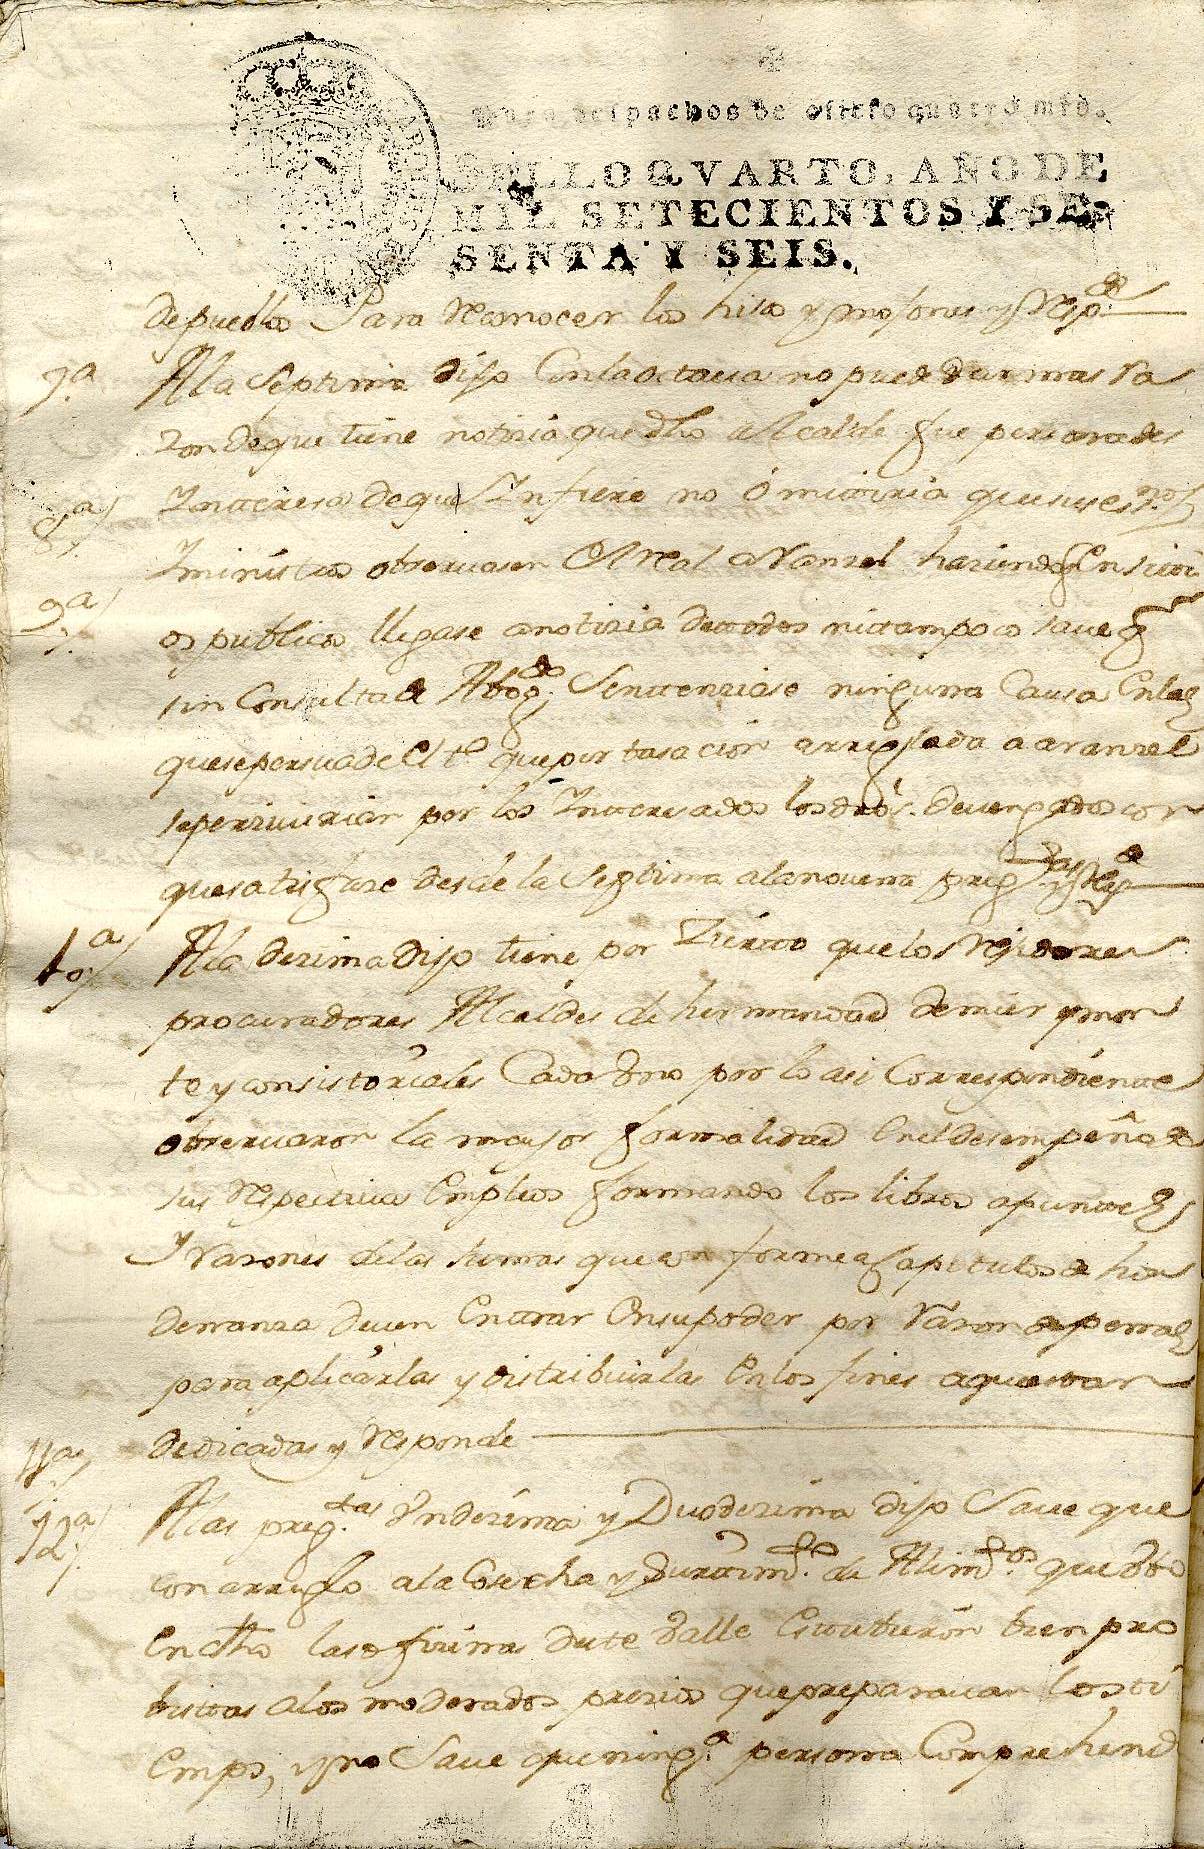 Para despachos de oficio quatro mrs.
SELLO QVARTO, AÑO DE
MIL SETECIENTOS Y SE-
SENTA Y SEIS.
de pueblo Para reconocer los hiso y mojones y Respde
7ª A la Septima dijo Con la octava no puede dar mas Ra
zon de que tiene notizia que dho Alcalde fue persona des
8ª Interesa de que Infiere no omitiria que sus essnos
Ministros observasen El real aranzel haziendo En siti
9ª os publicos llegase a notizia de todos ni tampoco save q
sin Consulta de Abogdo Sentenziase ninguna Causa En las
que se persuade El to que por tasacion arreglada a aranzel
se perzivirian por los Interesados los dros devengados con
que satisfaze desde la Septima a la novena pregtas y Respde
10ª A la dezima Dijo tiene por Zierto que los Rejidores
procuradores Alcaldes de hermandad de mier y mon
te y consistoriales Cada Vno por lo asi Correspondiente
observaron la mayor formalidad En el desempeño de
sus Respectivos Empleos formando los libros apuntes
Y Razones de las sumas que conforme a Capitulos de hor
denanza deven Entrar En su poder por Razon de penas
para aplicarlas y distribuirlas En los fines a que estan
dedicadas y Responde
11ª A las pregtas Vndezima y Duodezima dijo Save que
12ª con arreglo a la Cosecha y Surtimto de Alimtos que Vbo
En dho las oficinas de este Valle Estubieron bien pro
bistas a los moderados prezios que preparavan los ti
empos, y no Save que ninga persona Comprehend